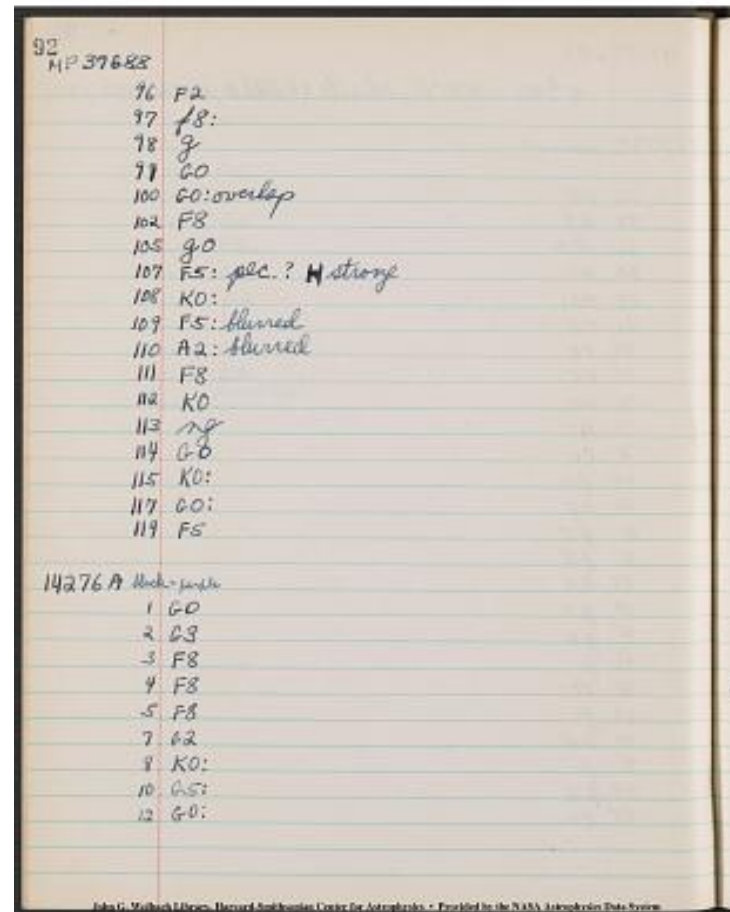 92
MP 37688
96 F2
97 f8:
98 g
99 G0
100 G0: overlap
102 F8
105 g0
107 F5: pec. ? H strong
108 K0:
109 F5: blurred
110 A2: blurred
111 F8
112 K0
113 ng
114 G0
115 K0:
117 G0:
119 F5
14276 A
1 G0
2 G3
3 F8
4 F8
5 F8
7 G2
8 K0:
10 G5:
12 G0:
John G. Wolbach Library, Harvard-Smithsonian Center for Astrophysics • Provided by the NASA Astrophysics Data System